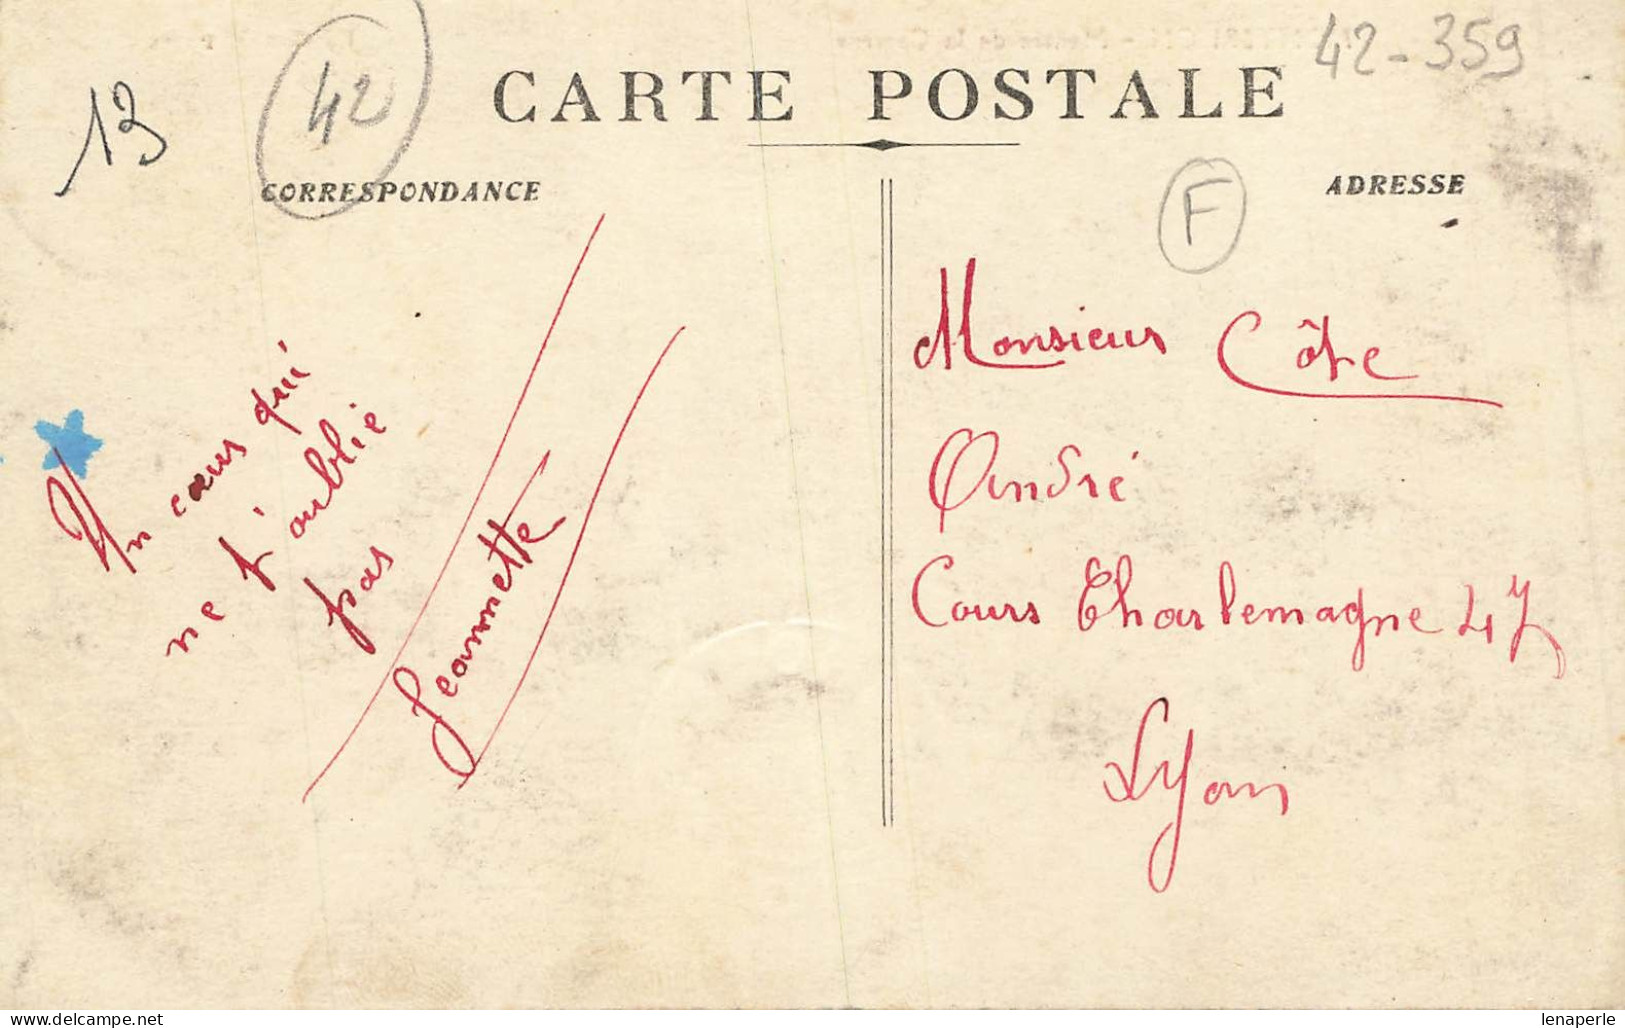 42-359
CARTE POSTALE
13
42
CORRESPONDANCE
ADRESSE
F
Un cœur qui
ne t'oublie
pas
Jeannette
Monsieur Côte
André
Cours Charlemagne 47
Lyon
lenaperle